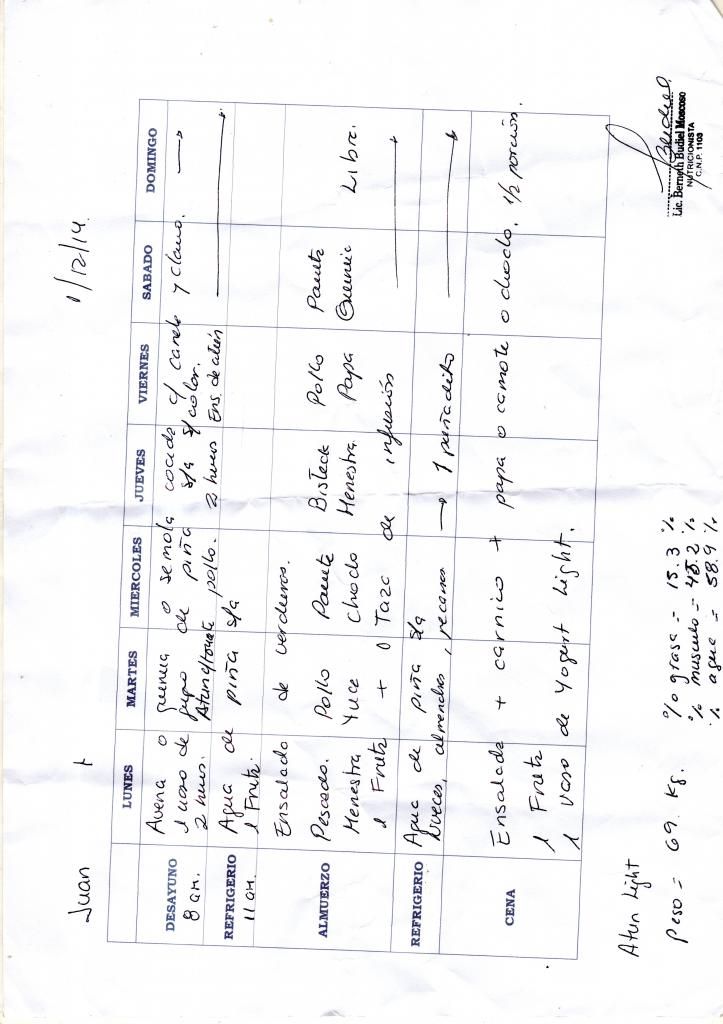 Juan
1/12/14.
LUNES MARTES MIERCOLES JUEVES VIERNES SABADO DOMINGO
DESAYUNO 8 am.
Avena o quinua o semola cocida c/ canela y clavo. →
1 vaso de jugo de piña s/a s/color.
2 huevos. Atun c/tomate pollo. 2 huevos Ens. de atún
REFRIGERIO 11 am.
Agua de piña s/a
1 Fruta.
ALMUERZO
Ensalada de verduras.
Pescado. Pollo Panita Bisteck Pollo Panita
Menestra Yuca Choclo Menestra Papa Libre.
1 Fruta + o Taza de infusión
REFRIGERIO
Agua de piña s/a
Nueces, almendras, pecanas → 1 puñadito
CENA
Ensalada + carnico + papa o camote o choclo. 1/2 porción.
1 Fruta
1 vaso de Yogurt Light.
Atun Light
Peso = 69. kg.
% grasa = 15.3 %
% musculo = 45.2 %
% agua = 58.9 %
Lic. Berneth Budiel Moscoso
NUTRICIONISTA
C.N.P. 1103